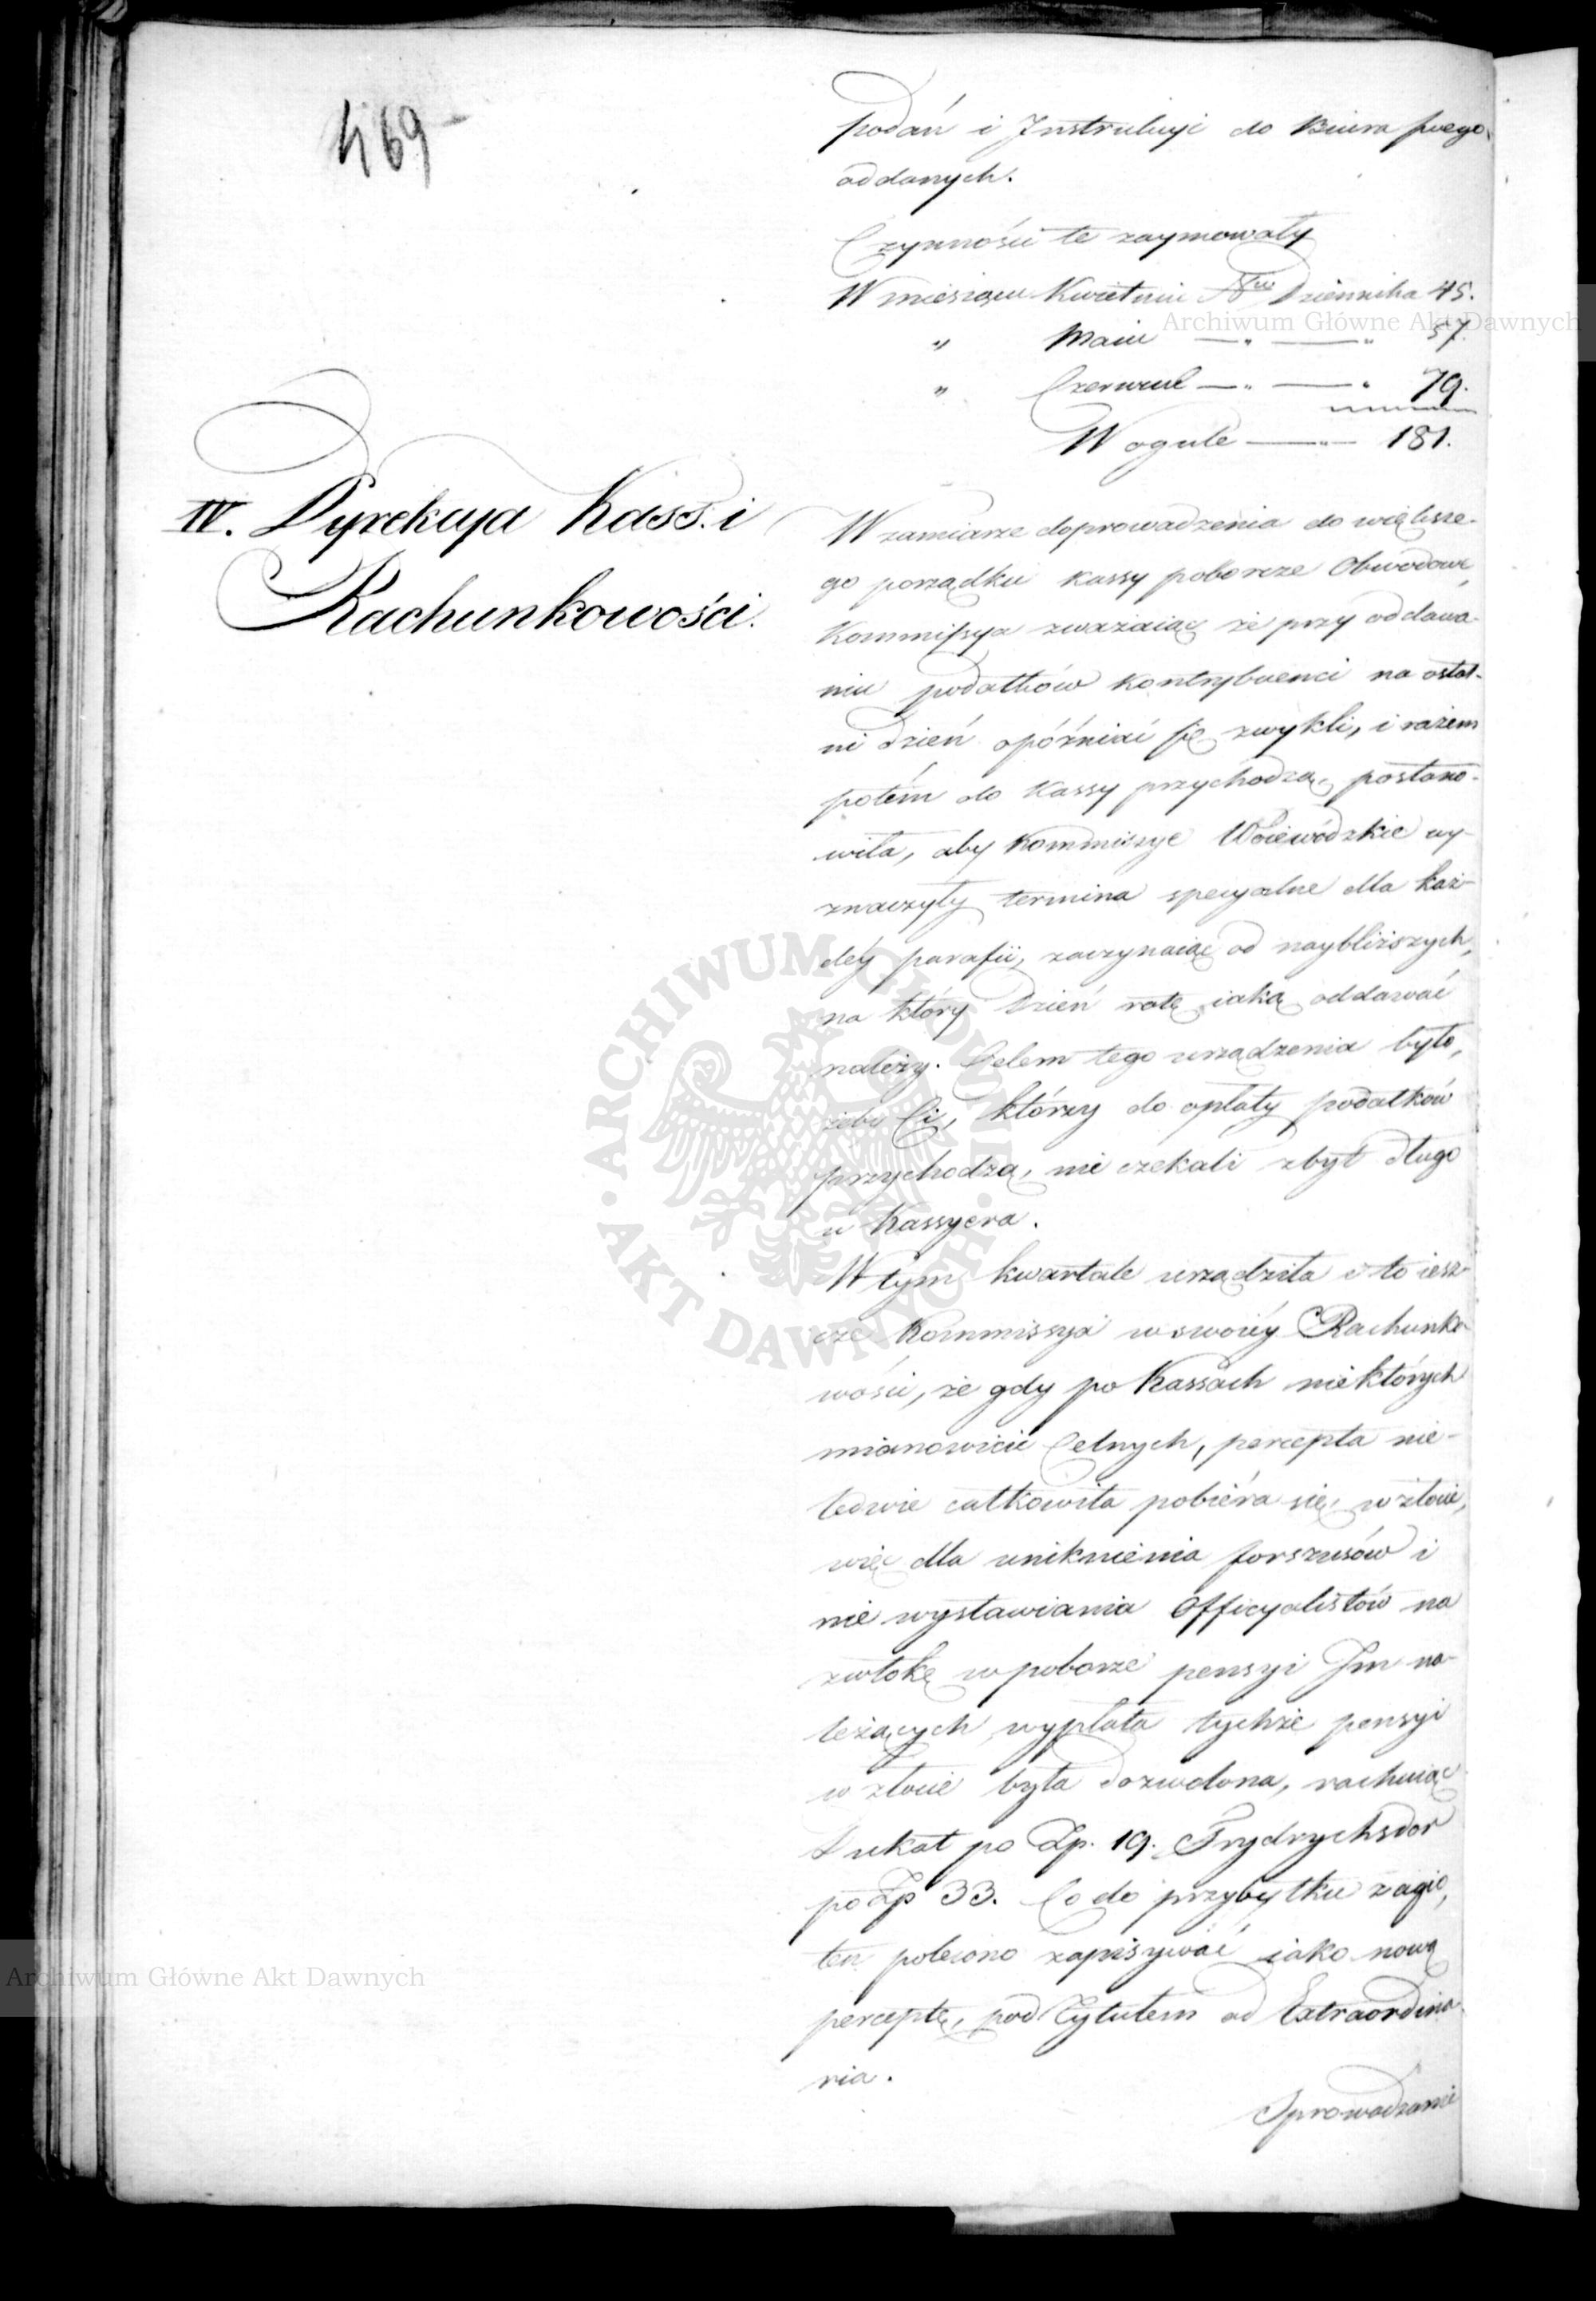 469
podań i Instrukcyi do Biura swego
oddanych.
Czynności te zaymowały
W miesiącu Kwietniu Nrów Dziennika 45.
" Maiu — " — " 57.
" Czerwcu — " — " 79.
W ogule — " — 181.
IV. Dyrekcya Kass. i
Rachunkowości.
W zamiarze doprowadzenia do większe-
go porządku kassy poborcze Obwodowe,
Kommissya zważaiąc że przy oddawa-
niu podatków kontrybuenci na ostat-
ni dzień opóźniać się zwykli, i razem
potém do Kassy przychodzą, postano-
wiła, aby Kommissye Woiewódzkie wy-
znaczyły termina specyalne dla każ-
déy parafii, zaczynaiąc od naybliższych,
na który dzień ratę iaką oddawać
należy. Celem tego urządzenia było,
żeby Ci, którzy do opłaty podatków
przychodzą, nie czekali zbyt długo
u Kassyera.
W tym kwartale urządziła i to iesz-
cze Kommissya w swoiéy Rachunko
wości, że gdy po Kassach niektórych
mianowicie Celnych, percepta nie-
ledwie całkowita pobiéra się w złocie,
więc dla uniknienia forszusów i
nie wystawiania Officyalistów na
zwłokę w poborze pensyi Im na-
leżących wypłata tychże pensyi
w złocie była dozwolona, rachuiąc
Dukat po Zp. 19. Frydrychsdor
po Zp 33. Co do przybytku z agio,
ten polecono zapisywać iako nową
perceptę, pod Tytułem ad Extraordina
ria.
Sprowadzanie
Archiwum Główne Akt Dawnych
ARCHIWUM GŁÓWNE · AKT DAWNYCH ·
Archiwum Główne Akt Dawnych